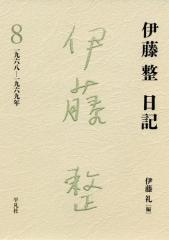 伊藤 整 日記
8
一九六八―一九六九年
伊藤整
伊藤 礼[編]
平凡社